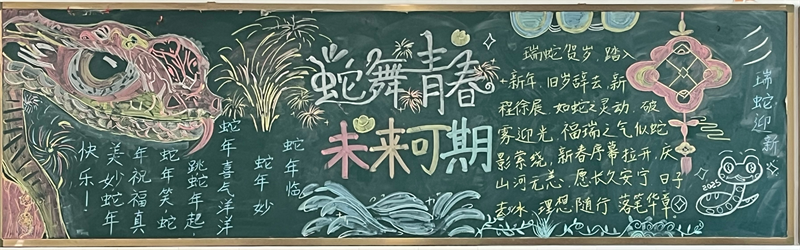 蛇舞青春
未来可期
蛇年临
蛇年妙
蛇年喜气洋洋
跳蛇年起
蛇年笑蛇
年祝福真
美妙蛇年
快乐！
瑞蛇贺岁，踏入
新年，旧岁辞去，新
程徐展，如蛇之灵动，破
雾迎光，福瑞之气似蛇
影萦绕，新春序幕拉开，庆
山河无恙，愿长久安宁，日子
理想随行，落笔华章。
瑞蛇迎新
2025